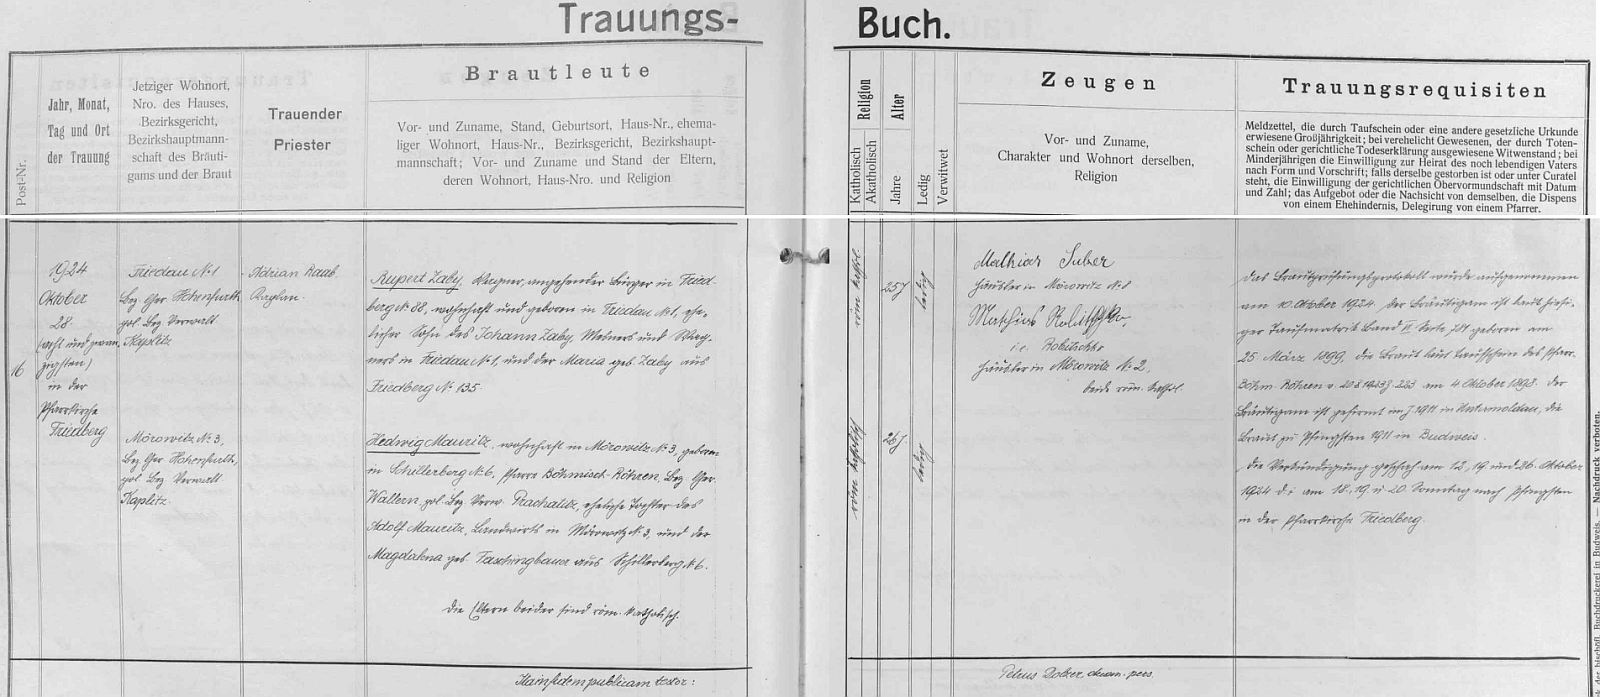 Trauungs-Buch.
Post-Nr.
Jahr, Monat,
Tag und Ort
der Trauung
Jetziger Wohnort,
Nro. des Hauses,
Bezirksgericht,
Bezirkshauptmann-
schaft des Bräuti-
gams und der Braut
Trauender
Priester
Brautleute
Vor- und Zuname, Stand, Geburtsort, Haus-Nr., ehema-
liger Wohnort, Haus-Nr., Bezirksgericht, Bezirkshaupt-
mannschaft; Vor- und Zuname und Stand der Eltern,
deren Wohnort, Haus-Nro. und Religion
Religion
Katholisch
Akatholisch
Alter
Jahre
Ledig
Verwitwet
Zeugen
Vor- und Zuname,
Charakter und Wohnort derselben,
Religion
Trauungsrequisiten
Meldzettel, die durch Taufschein oder eine andere gesetzliche Urkunde
erwiesene Großjährigkeit; bei verehelicht Gewesenen, der durch Toten-
schein oder gerichtliche Todeserklärung ausgewiesene Witwenstand; bei
Minderjährigen die Einwilligung zur Heirat des noch lebendigen Vaters
nach Form und Vorschrift; falls derselbe gestorben ist oder unter Curatel
steht, die Einwilligung der gerichtlichen Obervormundschaft mit Datum
und Zahl; das Aufgebot oder die Nachsicht von demselben, die Dispens
von einem Ehehindernis, Delegirung von einem Pfarrer.
16
1924
Oktober
28.
(acht und zwan-
zigsten)
in der
Pfarrkirche
Friedberg
Friedau № 1
Bez. Ger. Hohenfurth
pol. Bez. Verwalt
Kaplitz
Adrian Raab
Kaplan.
Rupert Zaby, Wagner, angehender Bürger in Fried-
berg № 88, wohnhaft und geboren in Friedau № 1, ehe-
licher Sohn des Johann Zaby, und Wag-
ners in Friedau № 1, und der Maria geb. Zaby aus
Friedberg № 135.
Mörowitz № 3,
Bez. Ger. Hohenfurth,
pol. Bez. Verwalt
Kaplitz
Hedwig Mauritz, wohnhaft in Mörowitz № 3, geboren
in Schillerberg № 6, Pfarre Böhmisch-Röhren, Bez. Ger.
Wallern, pol. Bez. Verw. Prachatitz, eheliche Tochter des
Adolf Mauritz, Landwirts in Mörowitz № 3, und der
Magdalena geb. Faschingbauer aus Schillerberg № 6.
Die Eltern beider sind röm. katholisch.
röm. kathol.
25 J
ledig
röm. katholisch
26 J.
ledig
Mathias Sulzer
Häusler in Mörowitz № 8
Mathias
i.e. Robitschko
Häusler in Mörowitz № 2,
beide röm. kathol.
Das Brautprüfungsprotokoll wurde aufgenommen
am 10. Oktober 1924. Der Bräutigam ist laut hiesi-
ger Taufmatrik Band II Seite geboren am
25. März 1899, die Braut laut Taufschein des Pfarr.
Böhm. Röhren v. am 4. Oktober 1898. Der
Bräutigam ist gefirmt im J. 1911 in Untermoldau, die
Braut zu Pfingsten 1911 in Budweis.
Die Verkündigung geschah am 12., 19. und 26. Oktober
1924 d.i. am 18., 19. u. 20. Sonntag nach Pfingsten
in der Pfarrkirche Friedberg.
In fidem publicam testor:
Petrus Dolzer
Buchdruckerei in Budweis. — Nachdruck verboten.